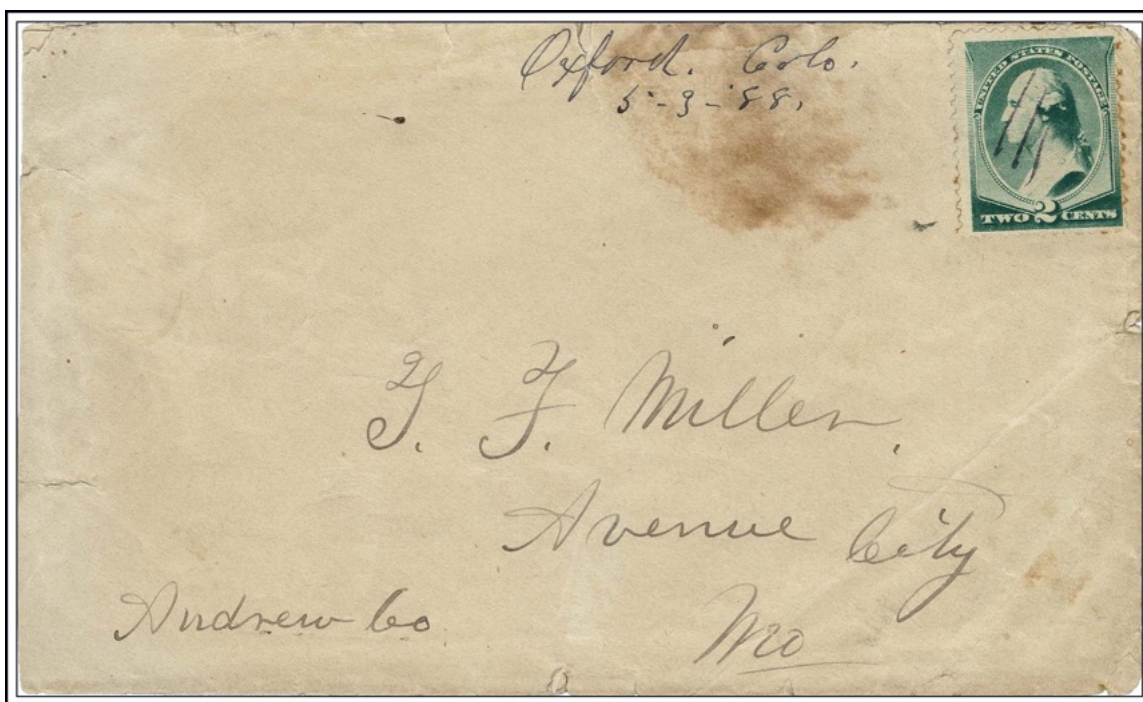 Oxford. Colo.
5-3-'88.
UNITED STATES POSTAGE
TWO 2 CENTS
T. F. Miller,
Avenue City
Andrew Co
Mo